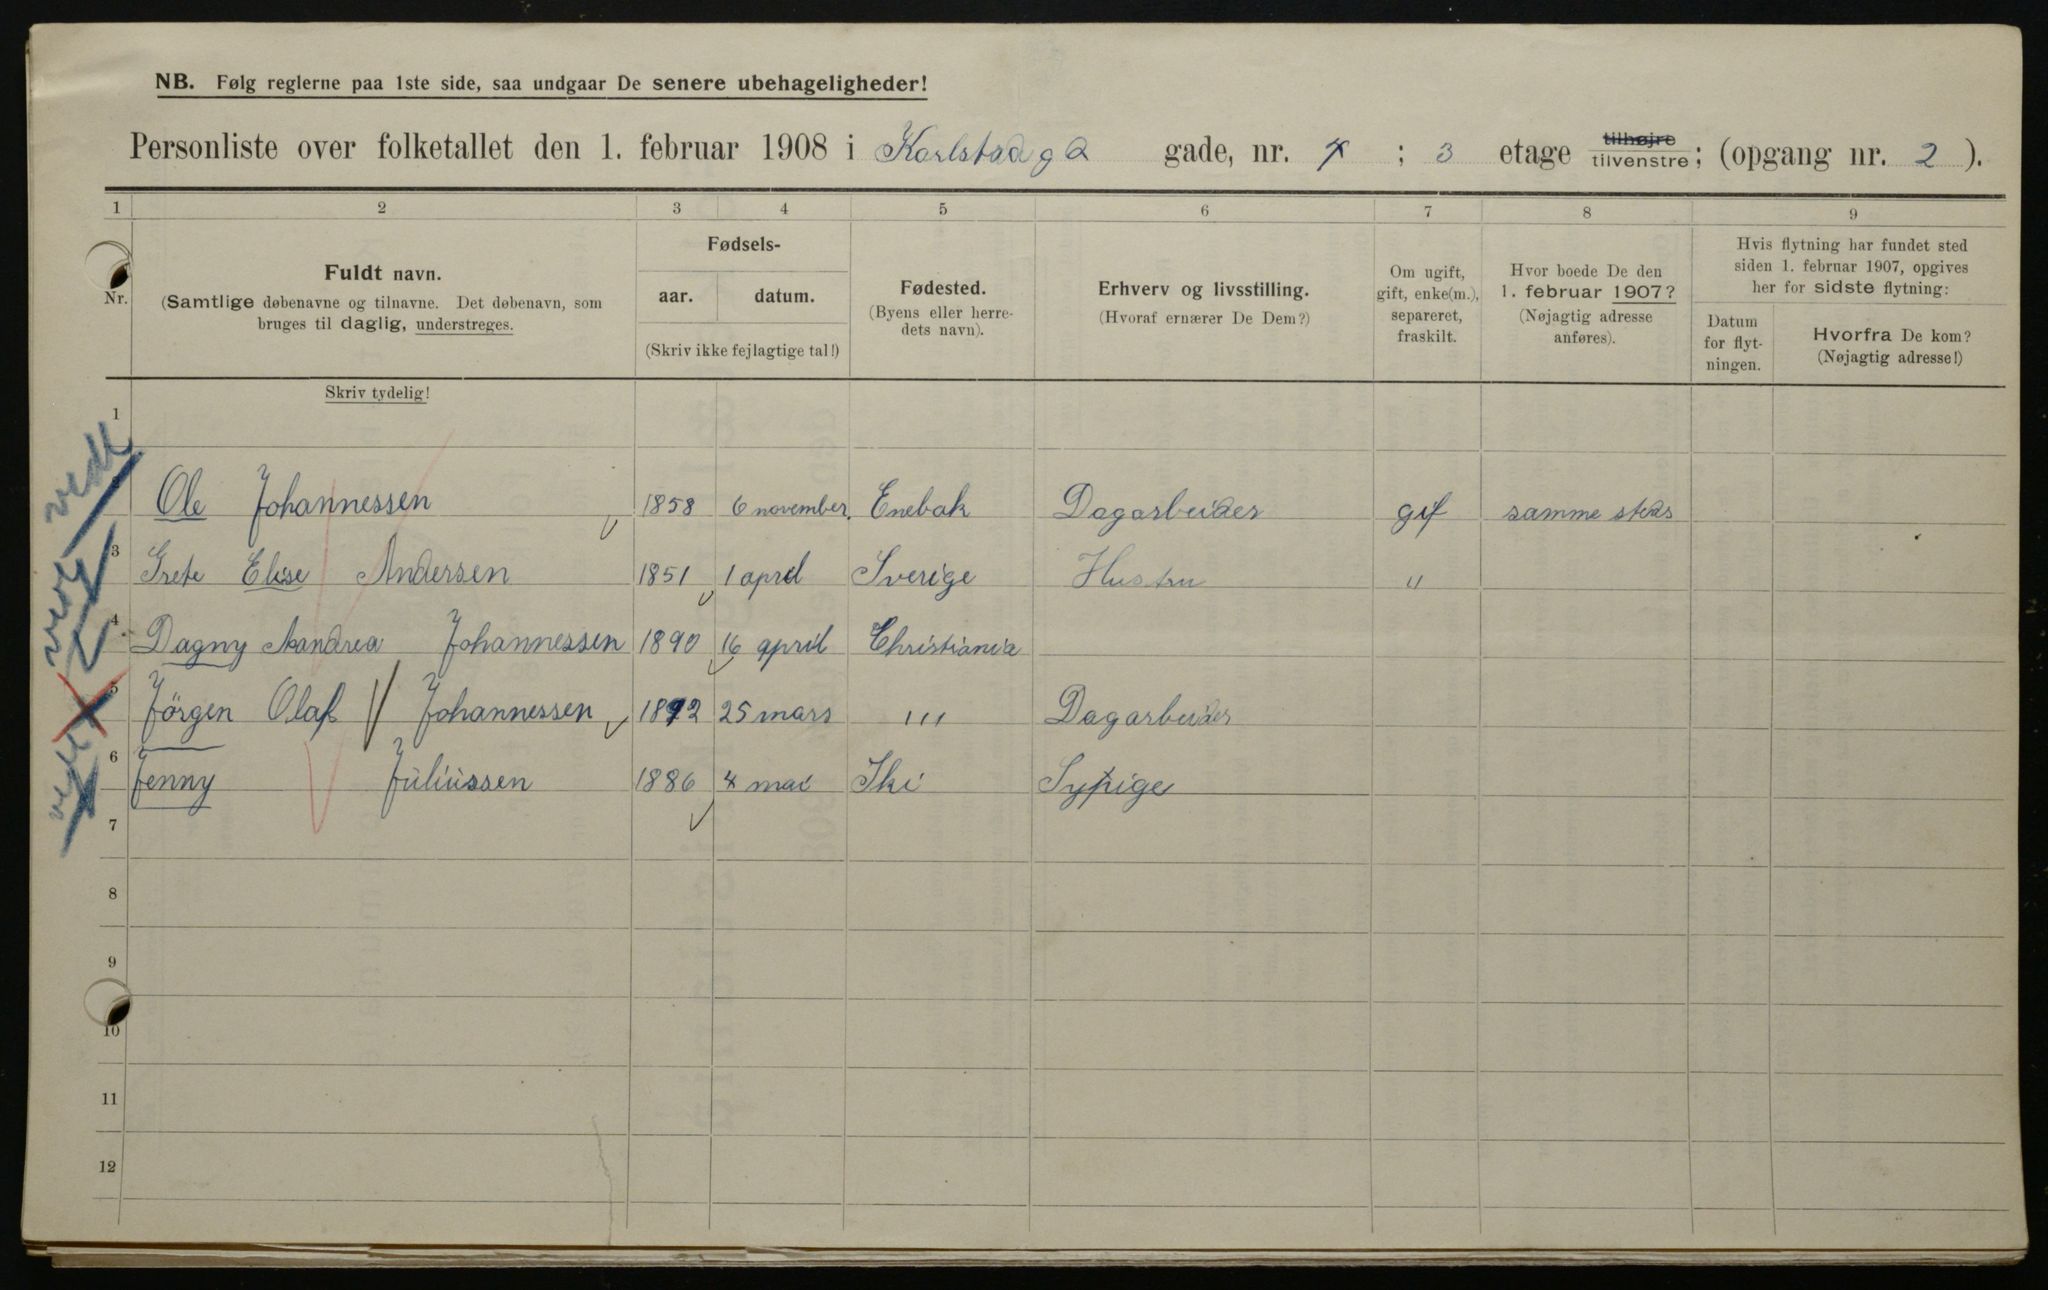 NB. Følg reglerne paa 1ste side, saa undgaar De senere ubehageligheder!
Personliste over folketallet den 1. februar 1908 i Karlstadg 2 gade, nr. ; 3 etage tilhøjre tilvenstre; (opgang nr. 2 ).
1 2 3 4 5 6 7 8 9
Nr.
Fuldt navn.
(Samtlige døbenavne og tilnavne. Det døbenavn, som
bruges til daglig, understreges.
Fødsels-
aar. datum.
(Skriv ikke fejlagtige tal!)
Fødested.
(Byens eller herre-
dets navn).
Erhverv og livsstilling.
(Hvoraf ernærer De Dem?)
Om ugift,
gift, enke(m.),
separeret,
fraskilt.
Hvor boede De den
1. februar 1907?
(Nøjagtig adresse
anføres).
Hvis flytning har fundet sted
siden 1. februar 1907, opgives
her for sidste flytning:
Datum
for flyt-
ningen.
Hvorfra De kom?
(Nøjagtig adresse!)
Skriv tydelig!
1
Ole Johannessen 1858 6 november. Enebak Dagarbeider gif samme steds
3 Grete Elise Andersen 1851 1 april Sverige Hustru "
4 Dagny Johannessen 1890 16 april Christiania
5 Jörgen Olaf Johannessen 1892 25 mars ''' Dagarbeider
6 Jenny Juliussen 1886 4 mai Ski Sypige
7
8
9
10
11
12